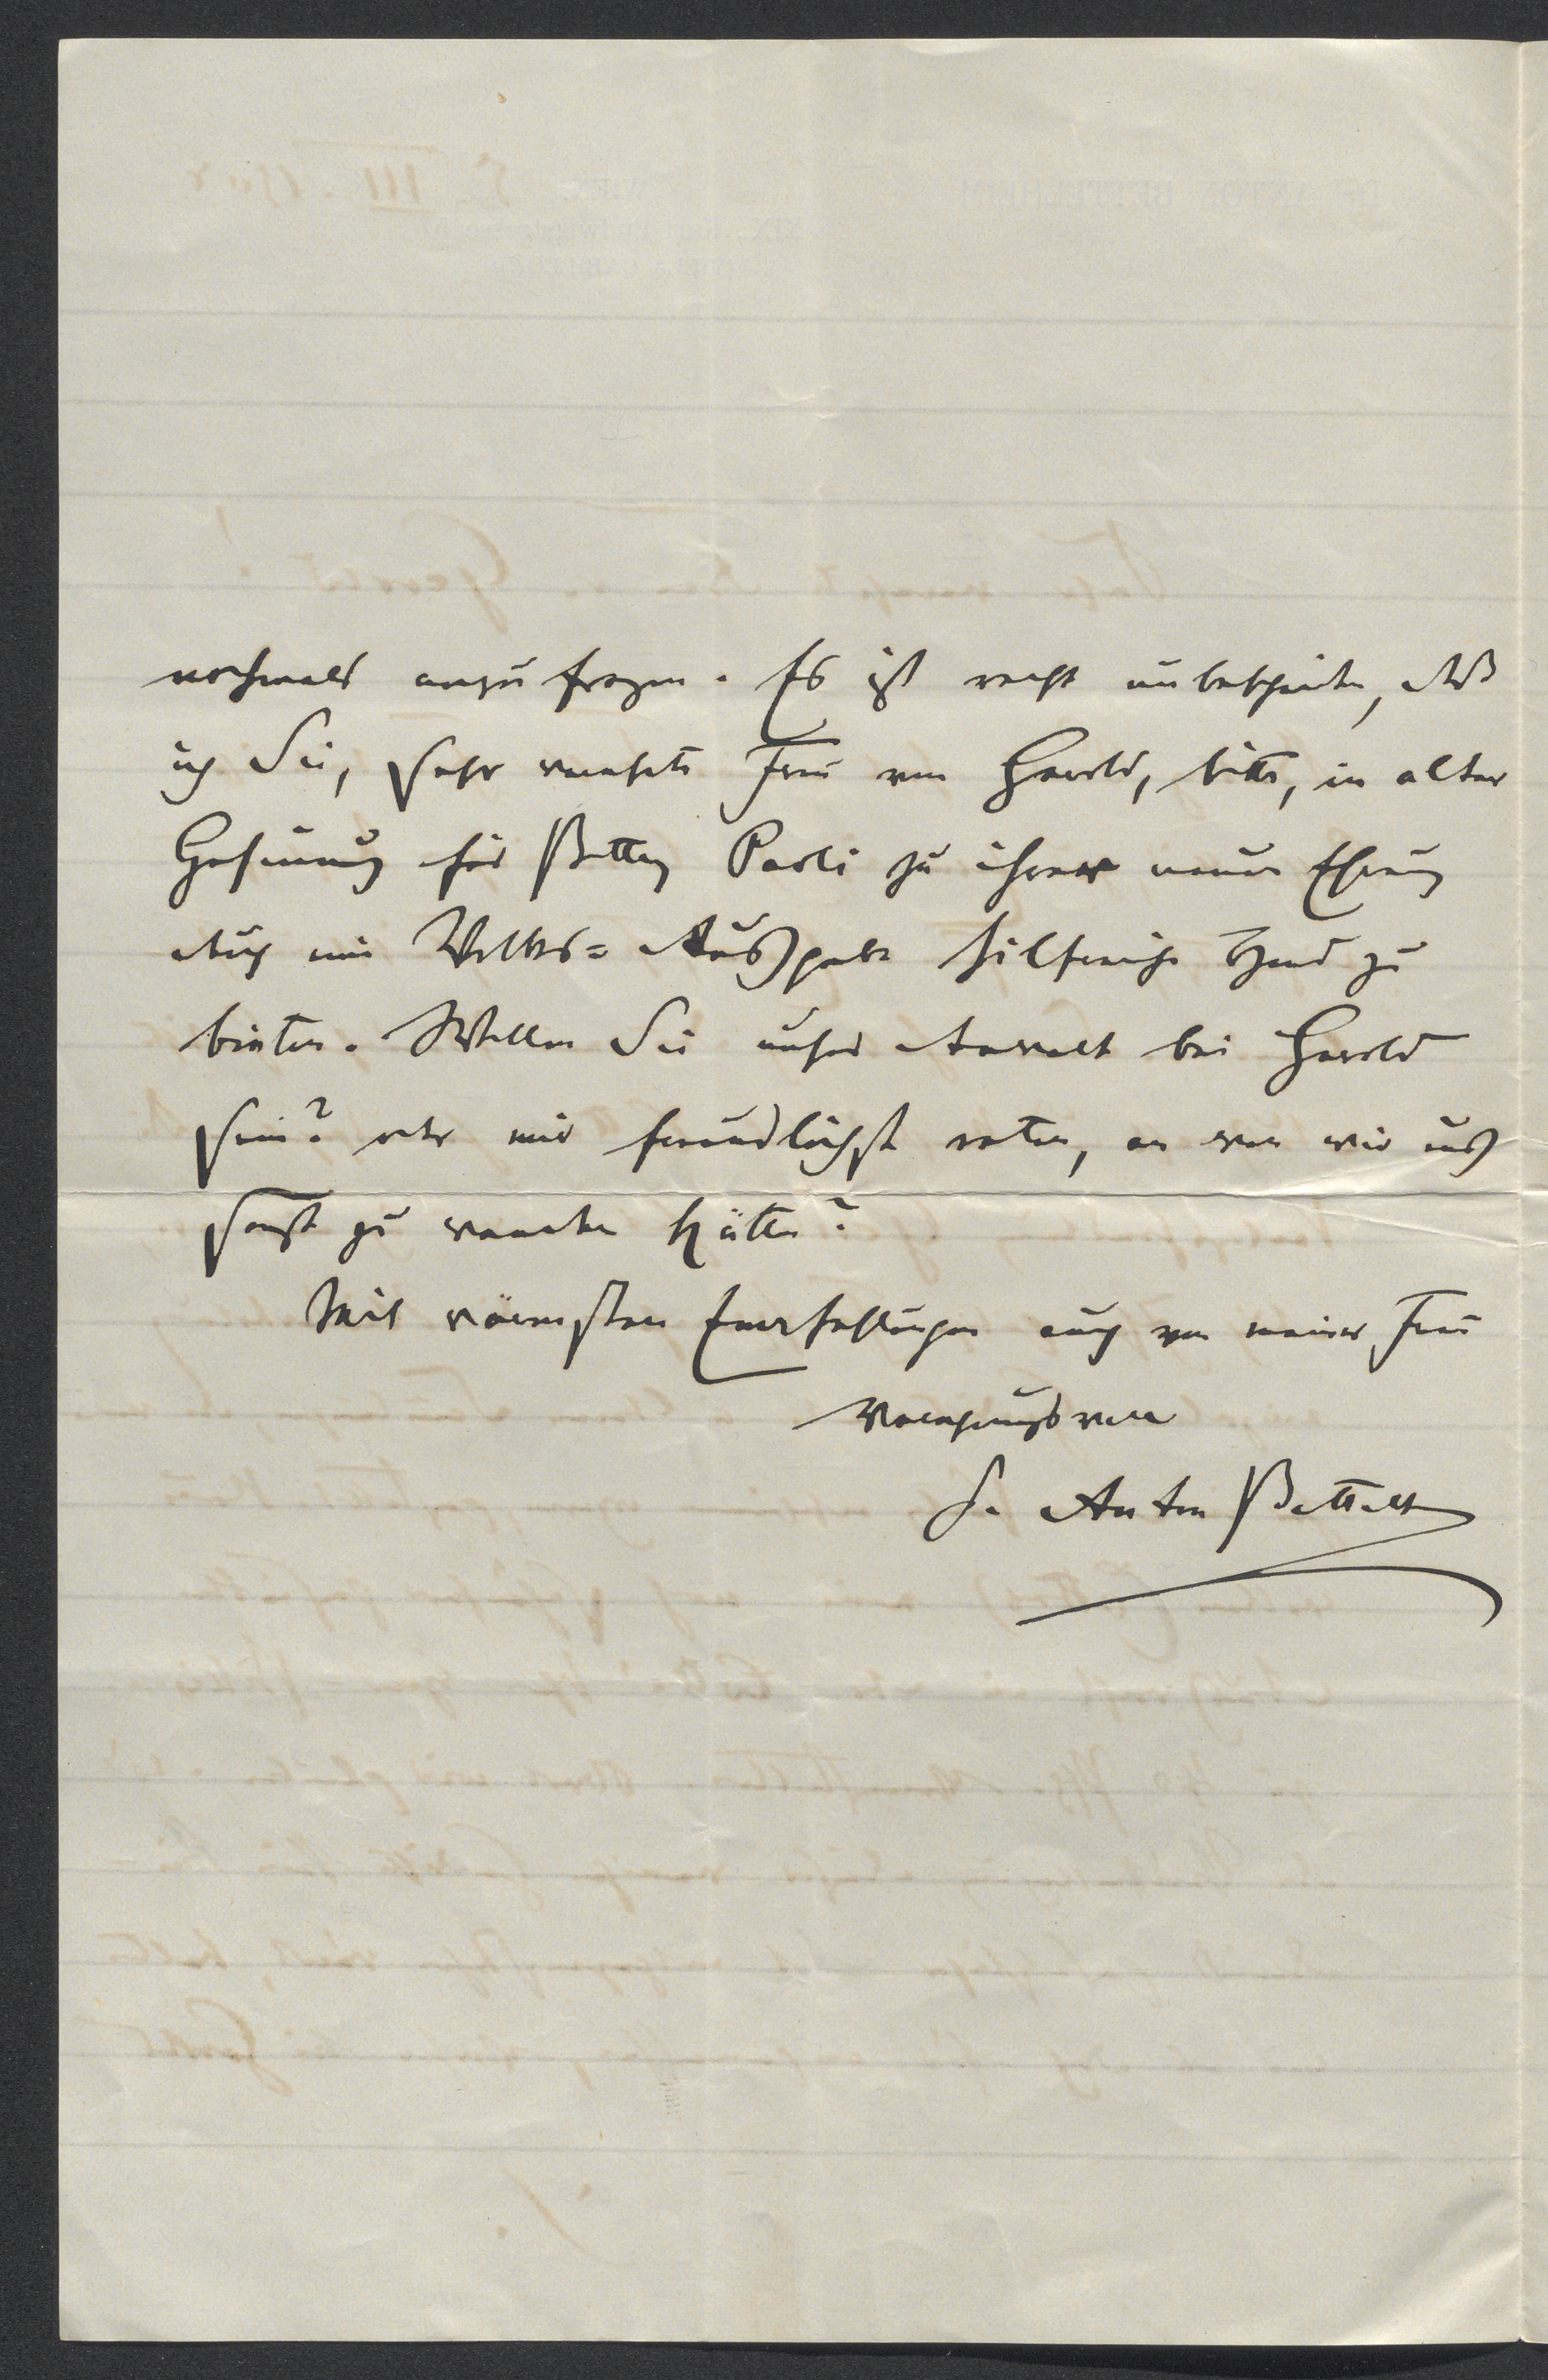 nochmals anzufragen. Es ist recht unbescheiden, daß
ich Sie, sehr verehrte Frau von Gerold, bitte, in alter
Gesinnung für Betty Paoli zu ihrer neuen Ehrung
durch eine Volks= Ausgabe hilfreiche Hand zu
bieten. Wollen Sie unser Anwalt bei Gerold
sein? oder mir freundlichst raten, an wen wir uns
sonst zu wenden hätten?
Mit wärmsten Empfehlungen auch von meiner Frau
verehrungsvoll
Dr. Anton Bettelh